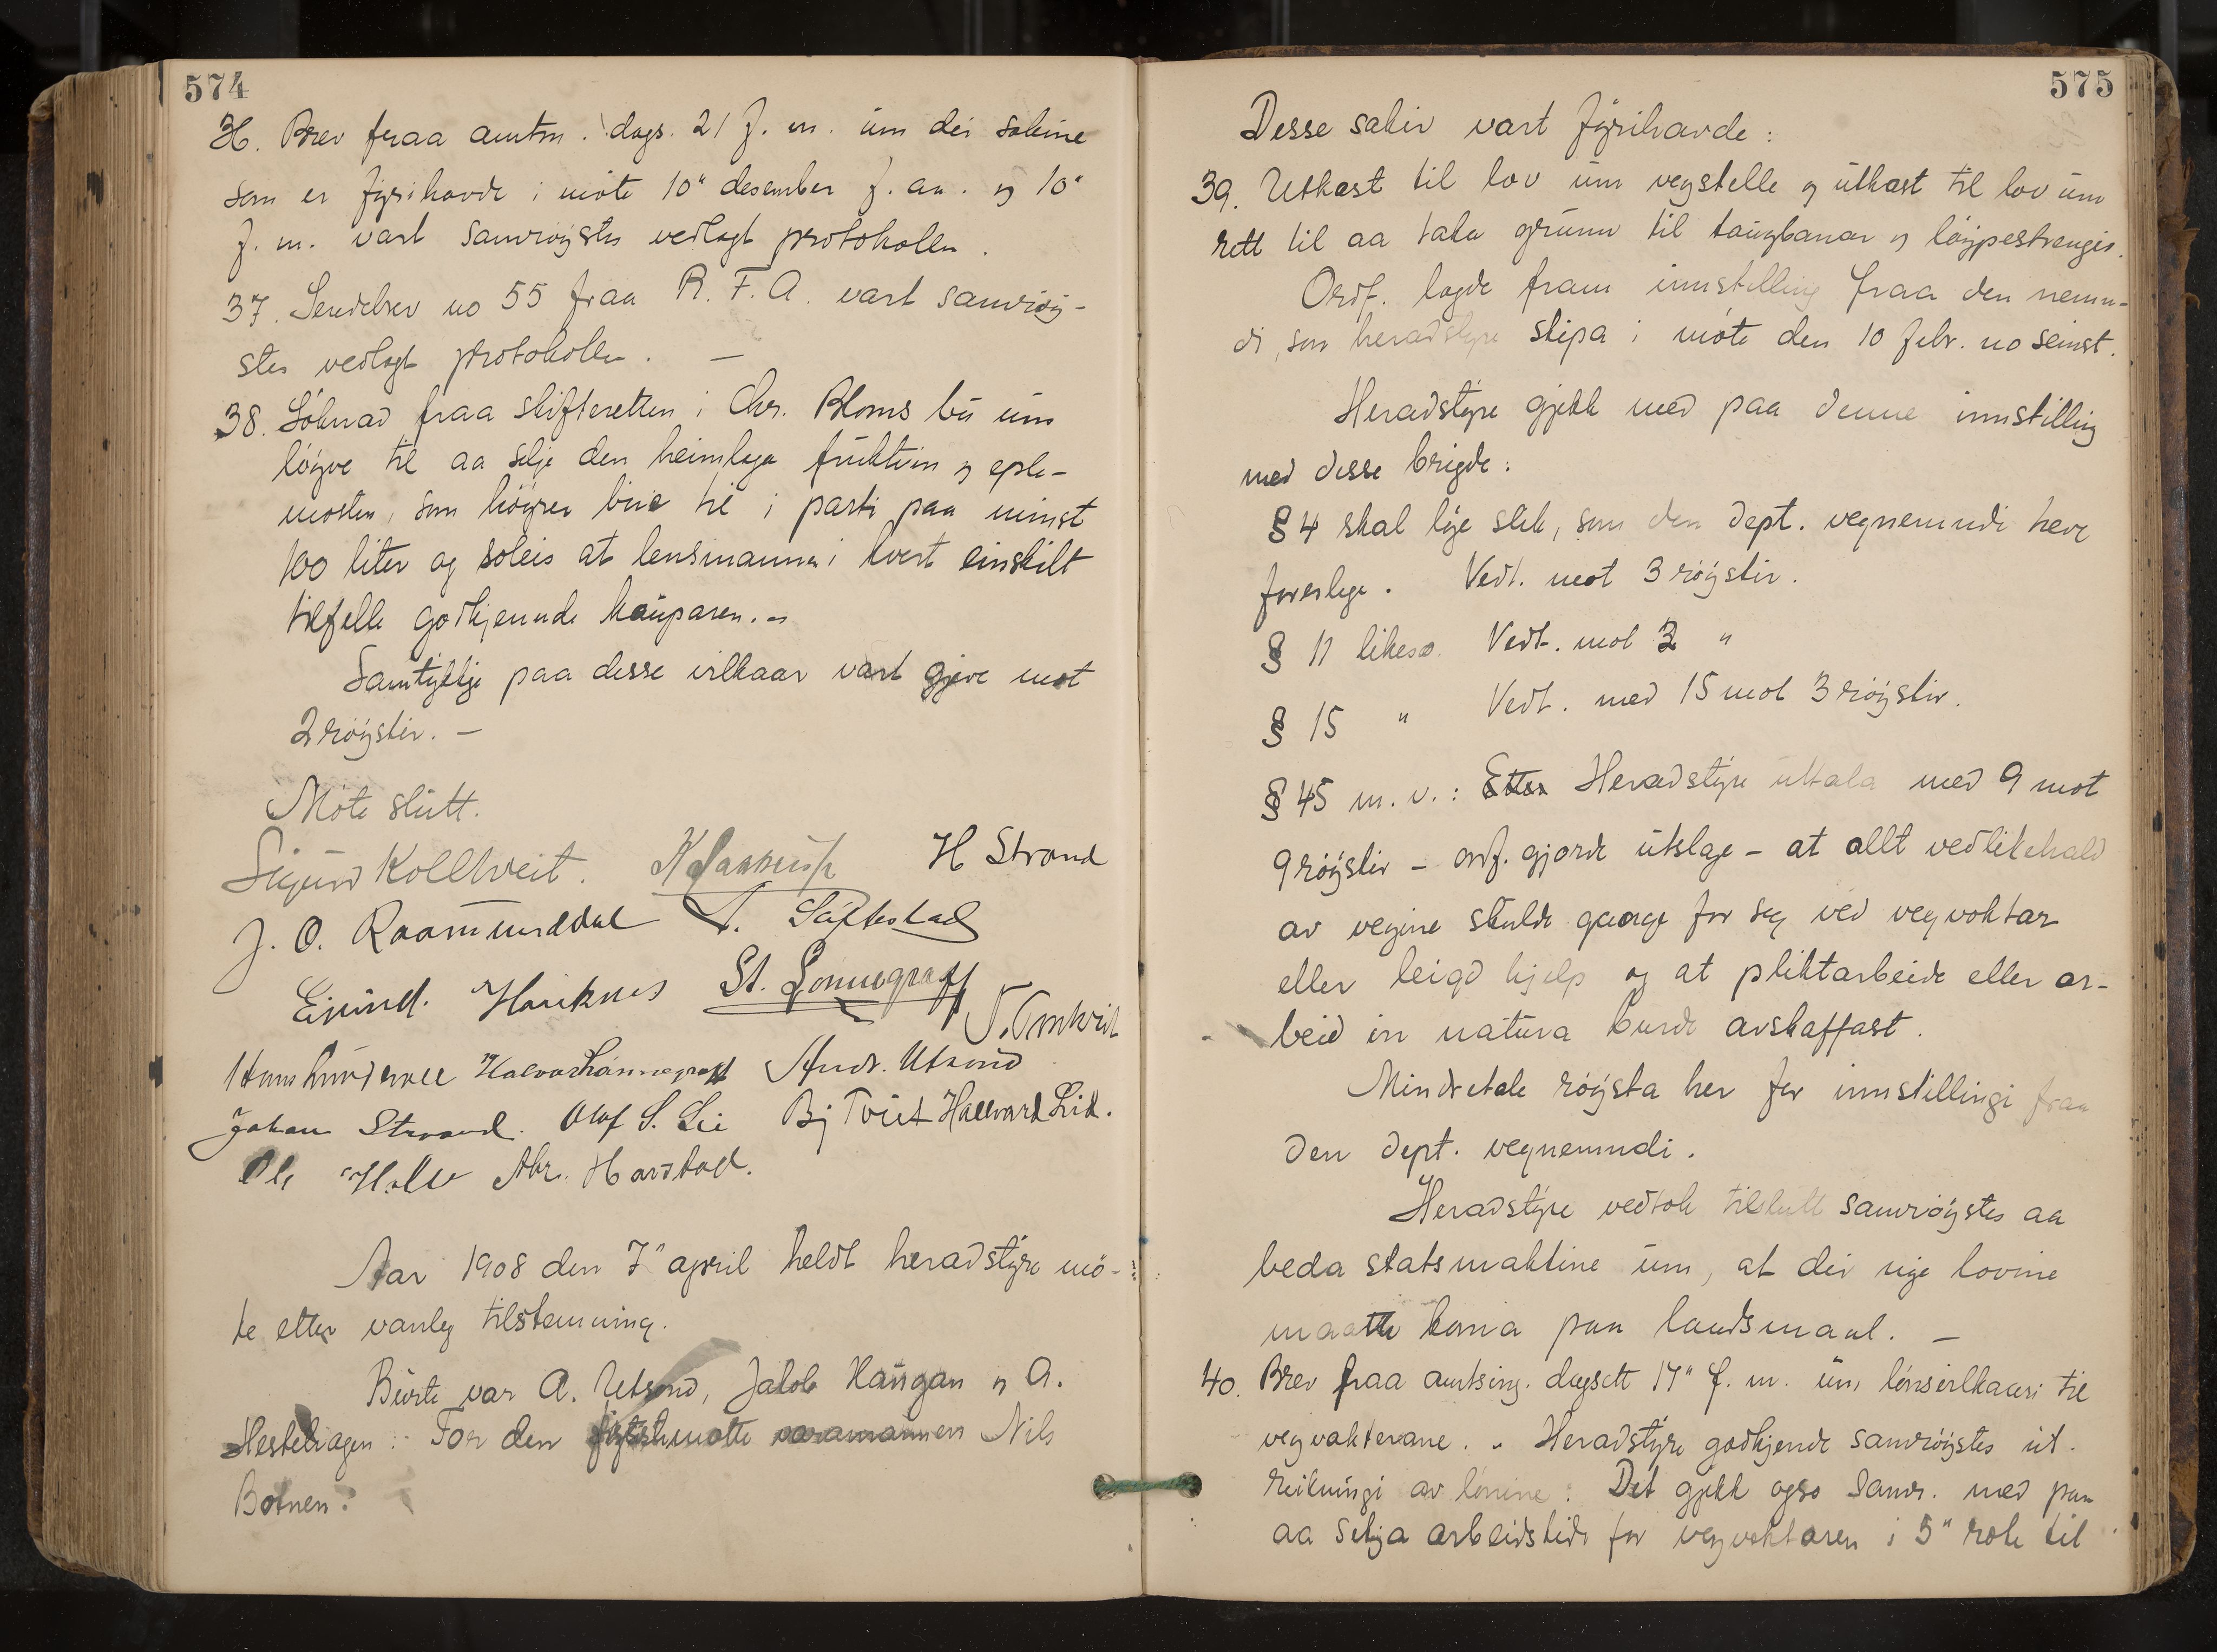 574
36. Brev fraa amtm. dags. 21 f. m. um dei sakine
som er fyrihavde i møte 10" desember f. aa. og 10"
f. m. vart samrøystes vedlagt protokollen.
37. Sendebrev no 55 fraa R. F. A. vart samrøy-
stes vedlagt protokollen. —
38. Søknad fraa skifteretten i Chr. Bloms bu um
løyve til aa selja den heimlaga fruktvin og eple-
mosten, som høyrer buie til i parti paa minst
100 liter og soleis at lensmannen i kvert einskilt
tilfelle godkjennde kauparen. —
Samtykkje paa desse vilkaar vart gjeve mot
2 røyster. —
Møte slutt.
Sigurd Kolltveit. H Strand
J. O. Raamunddal T. Sæftestad
Eivind. Hauknes St. Lonnegraff
Halvor Lønnegraff Andr. Utsund
Johan Strand. Olof S. Lie Bj Tveit Hallvard Lid.
Ole Halv Abr. Harstad.
Aar 1908 den 7" april heldt heradstyre mø-
te etter vanleg tilstemning.
Burte var A. Utsund, Jakob Haugan og A.
Hestehagen. For den varamannen Nils
Botnen.
575
Desse sakir vart fyrihavde:
39. Utkast til lov um vegstelle og utkast til lov um
rett til aa taka grunn til taugbanar og løypestrengir.
Ordf. lagde fram innstelling fraa den nemn-
di, som heradstyre skipa i møte den 10 febr. no seinst.
Heradstyre gjekk med paa denne innstilling
med desse brigde:
§ 4 skal lyde slik, som den dept. vegnemndi heve
foreslege. Vedt. mot 3 røyster.
§ 11 likeso. Vedt. mot 3 "
§ 15 " Vedt. med 15 mot 3 røyster.
§ 45 m. v.: Etter Heradstyre uttala med 9 mot
9 røyster - ordf. gjorde utslage - at allt vedlikehald
av vegine skulde gaange for seg ved vegvoktar
eller leigd hjelp og at pliktarbeide eller ar-
beid in natura burde avskaffast.
Mindretale røysta her for innstillingi fraa
den dept. vegnemndi.
Heradstyre vedtok tilslutt samrøystes aa
beda statsmaktine um, at dei nye lovine
maatte koma paa landsmaal. —
40. Brev fraa amtsing. dagsett 17" f. m. um lønsvilkaari til
vegvaktarane. - Heradstyre godkjende samrøystes ut-
reikningi av lønine. Det gjekk ogso samr. med paa
aa setja arbeidstidi for vegvoktaren i 5" rode til